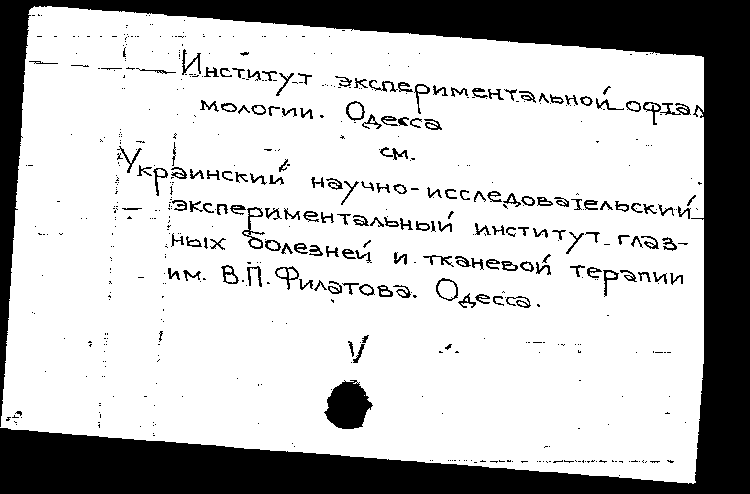 Институт экспериментальной офтал
мологии. Одесса
см.
Украинский научно-исследовательский
экспериментальный институт глаз-
ных болезней и тканевой терапии
им. В.П. Филатова. Одесса.
V